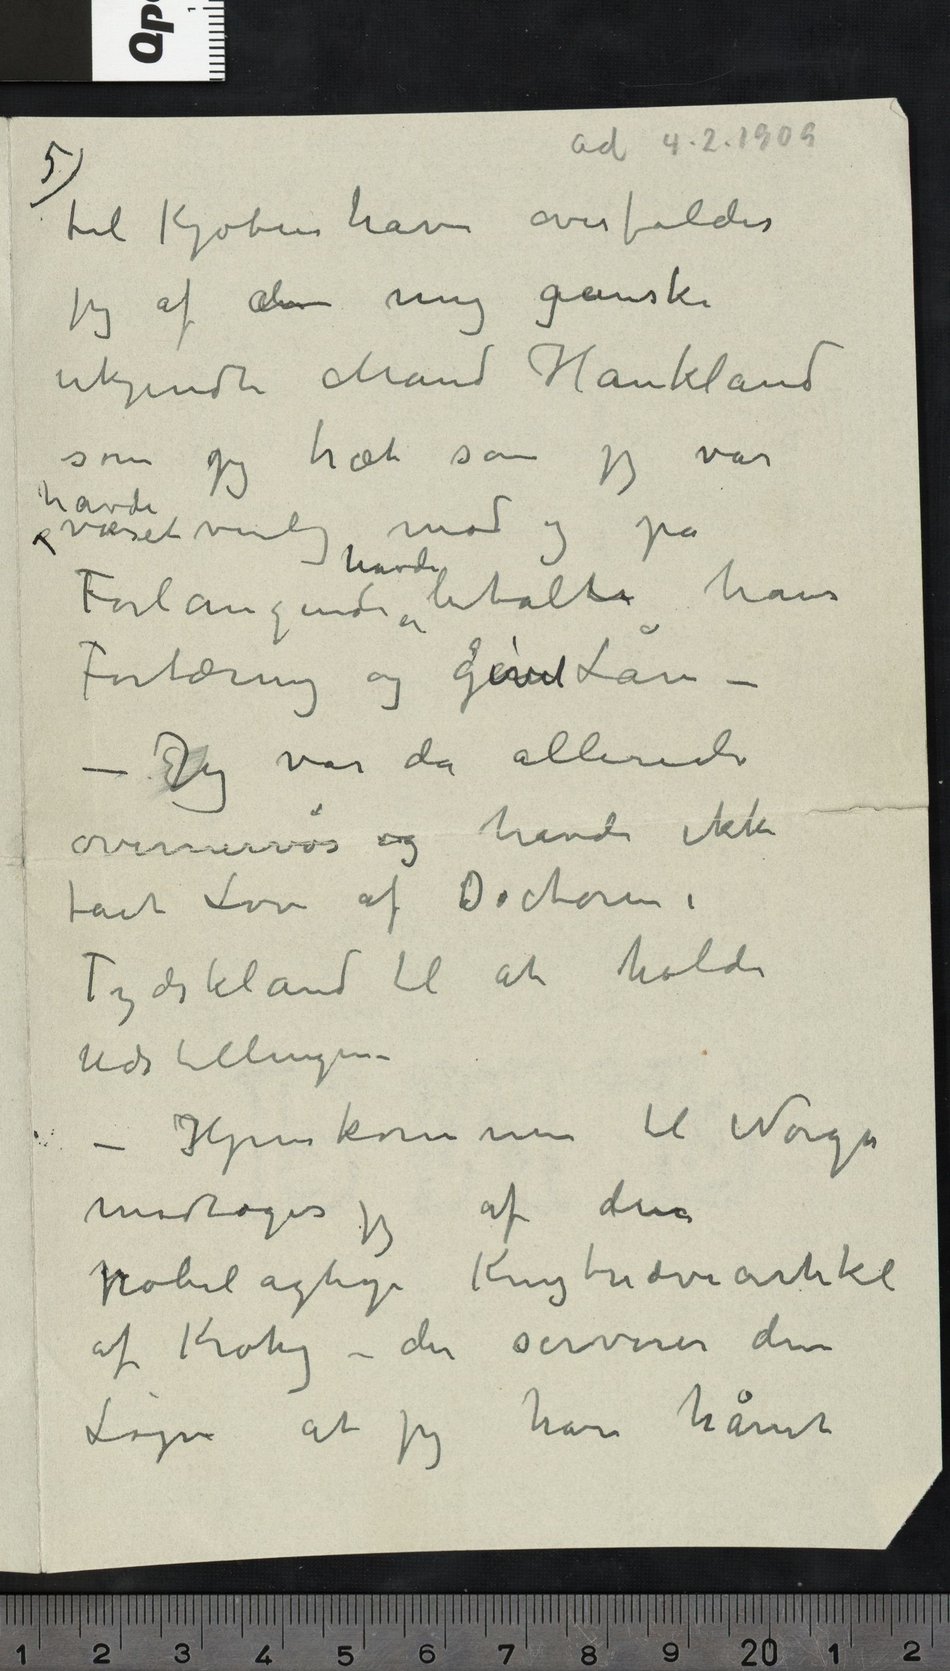 ad 4.2.1909
5)
til Kjøbenhavn overfaldes
jeg af den mig ganske
ukjendte Mand Haukland
som jeg træt som jeg var
havde
været venlig mod og på
havde
Forlangende betalt hans
Fortæring og givet Lån –
– Jeg var da allerede
overnervøs og havde ikke
faet Lov af Doctoren i
Tydskland til at holde
Udstillingen –
– Hjemkommen til Norge
modtoges jeg af den
pøbelagtige Knytnæveartikel
af Krohg – der serverer den
Løgn at jeg har hånet
1 2 3 4 5 6 7 8 9 20 1 2